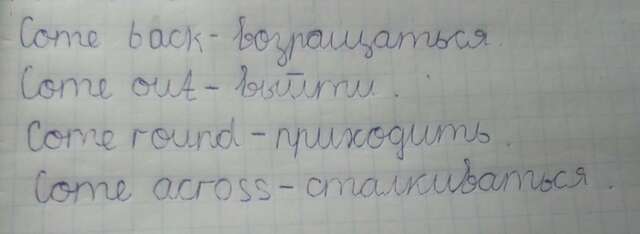 Come back - возращаться.
Come out - выйти.
Come round - приходить.
Come across - сталкиваться.